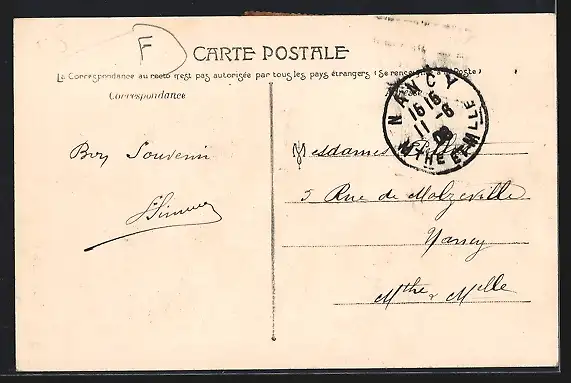 F
CARTE POSTALE
La Correspondance au recto n'est pas autorisée par tous les pays étrangers (Se renseigner à la Poste)
Correspondance
NANCY
16 15
11 -8
MTHE ET MLLE
Bon Souvenir
Mesdames
5 Rue de Malzéville
Nancy
Mthe & Mlle